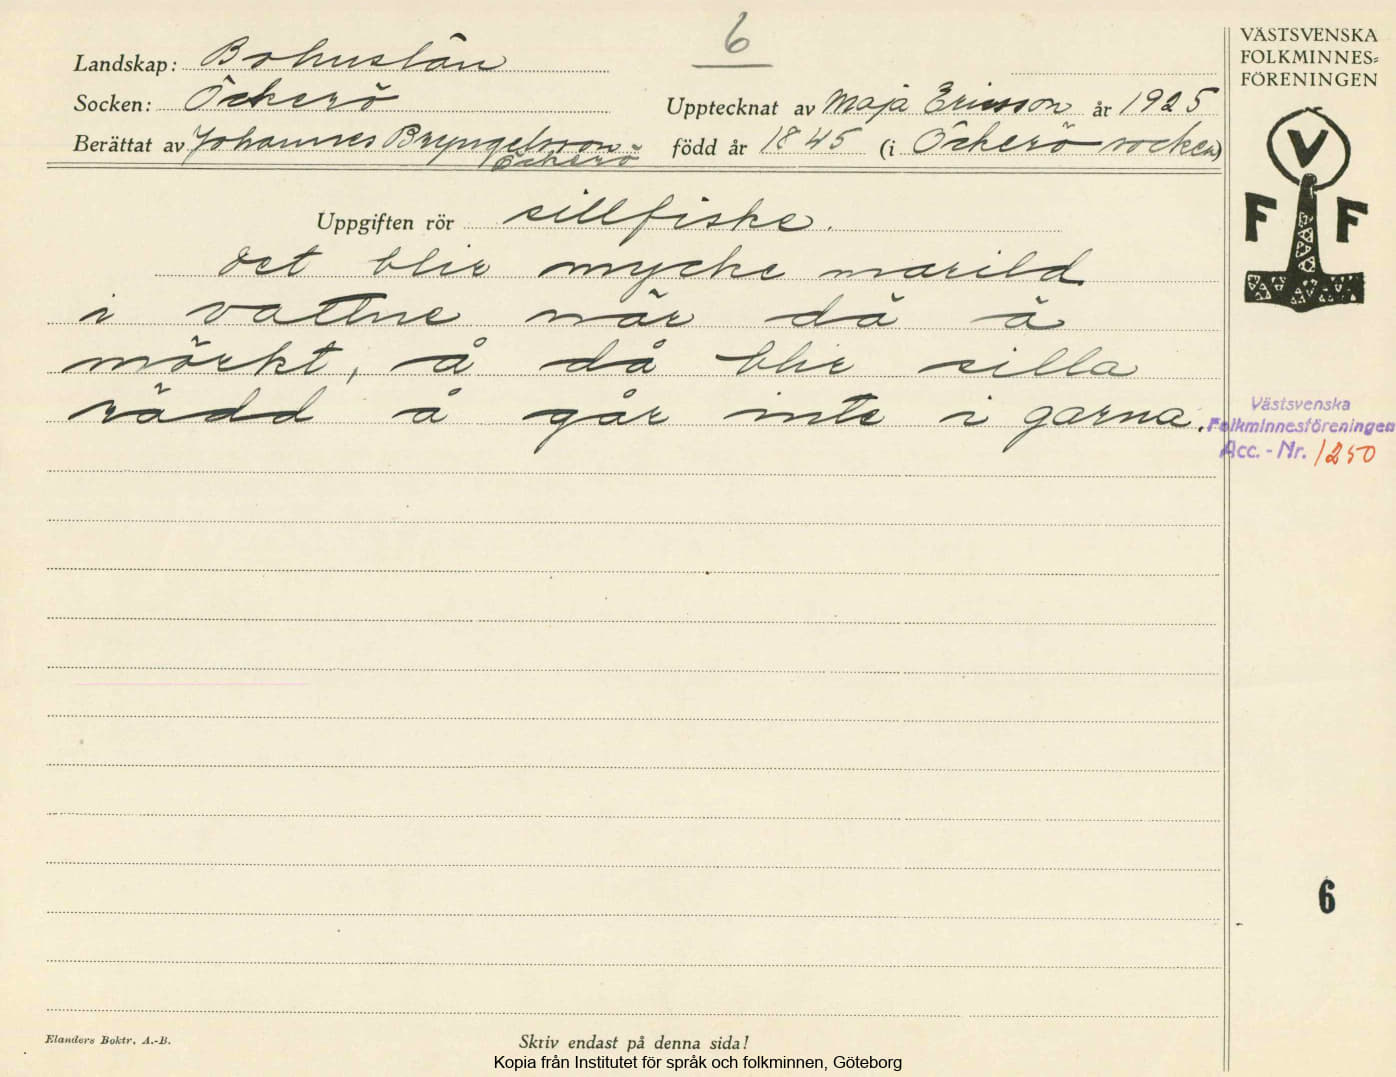 6
Landskap: Bohuslän
Socken: Öckerö
Upptecknat av Maja Ericsson år 1925
Berättat av Johannes Bryngelsson
Öckerö
född år 1845 (i Öckerö socken)
Uppgiften rör sillfiske.
Det blir mycke marild
i vattne när då ä
mörkt, å då blir silla
rädd å går inte i garna.
VÄSTSVENSKA
FOLKMINNES=
FÖRENINGEN
V
F F
Västsvenska
Folkminnesföreningen
Acc. - Nr. 1250
6
Elanders Boktr. A.-B.
Skriv endast på denna sida!
Kopia från Institutet för språk och folkminnen, Göteborg